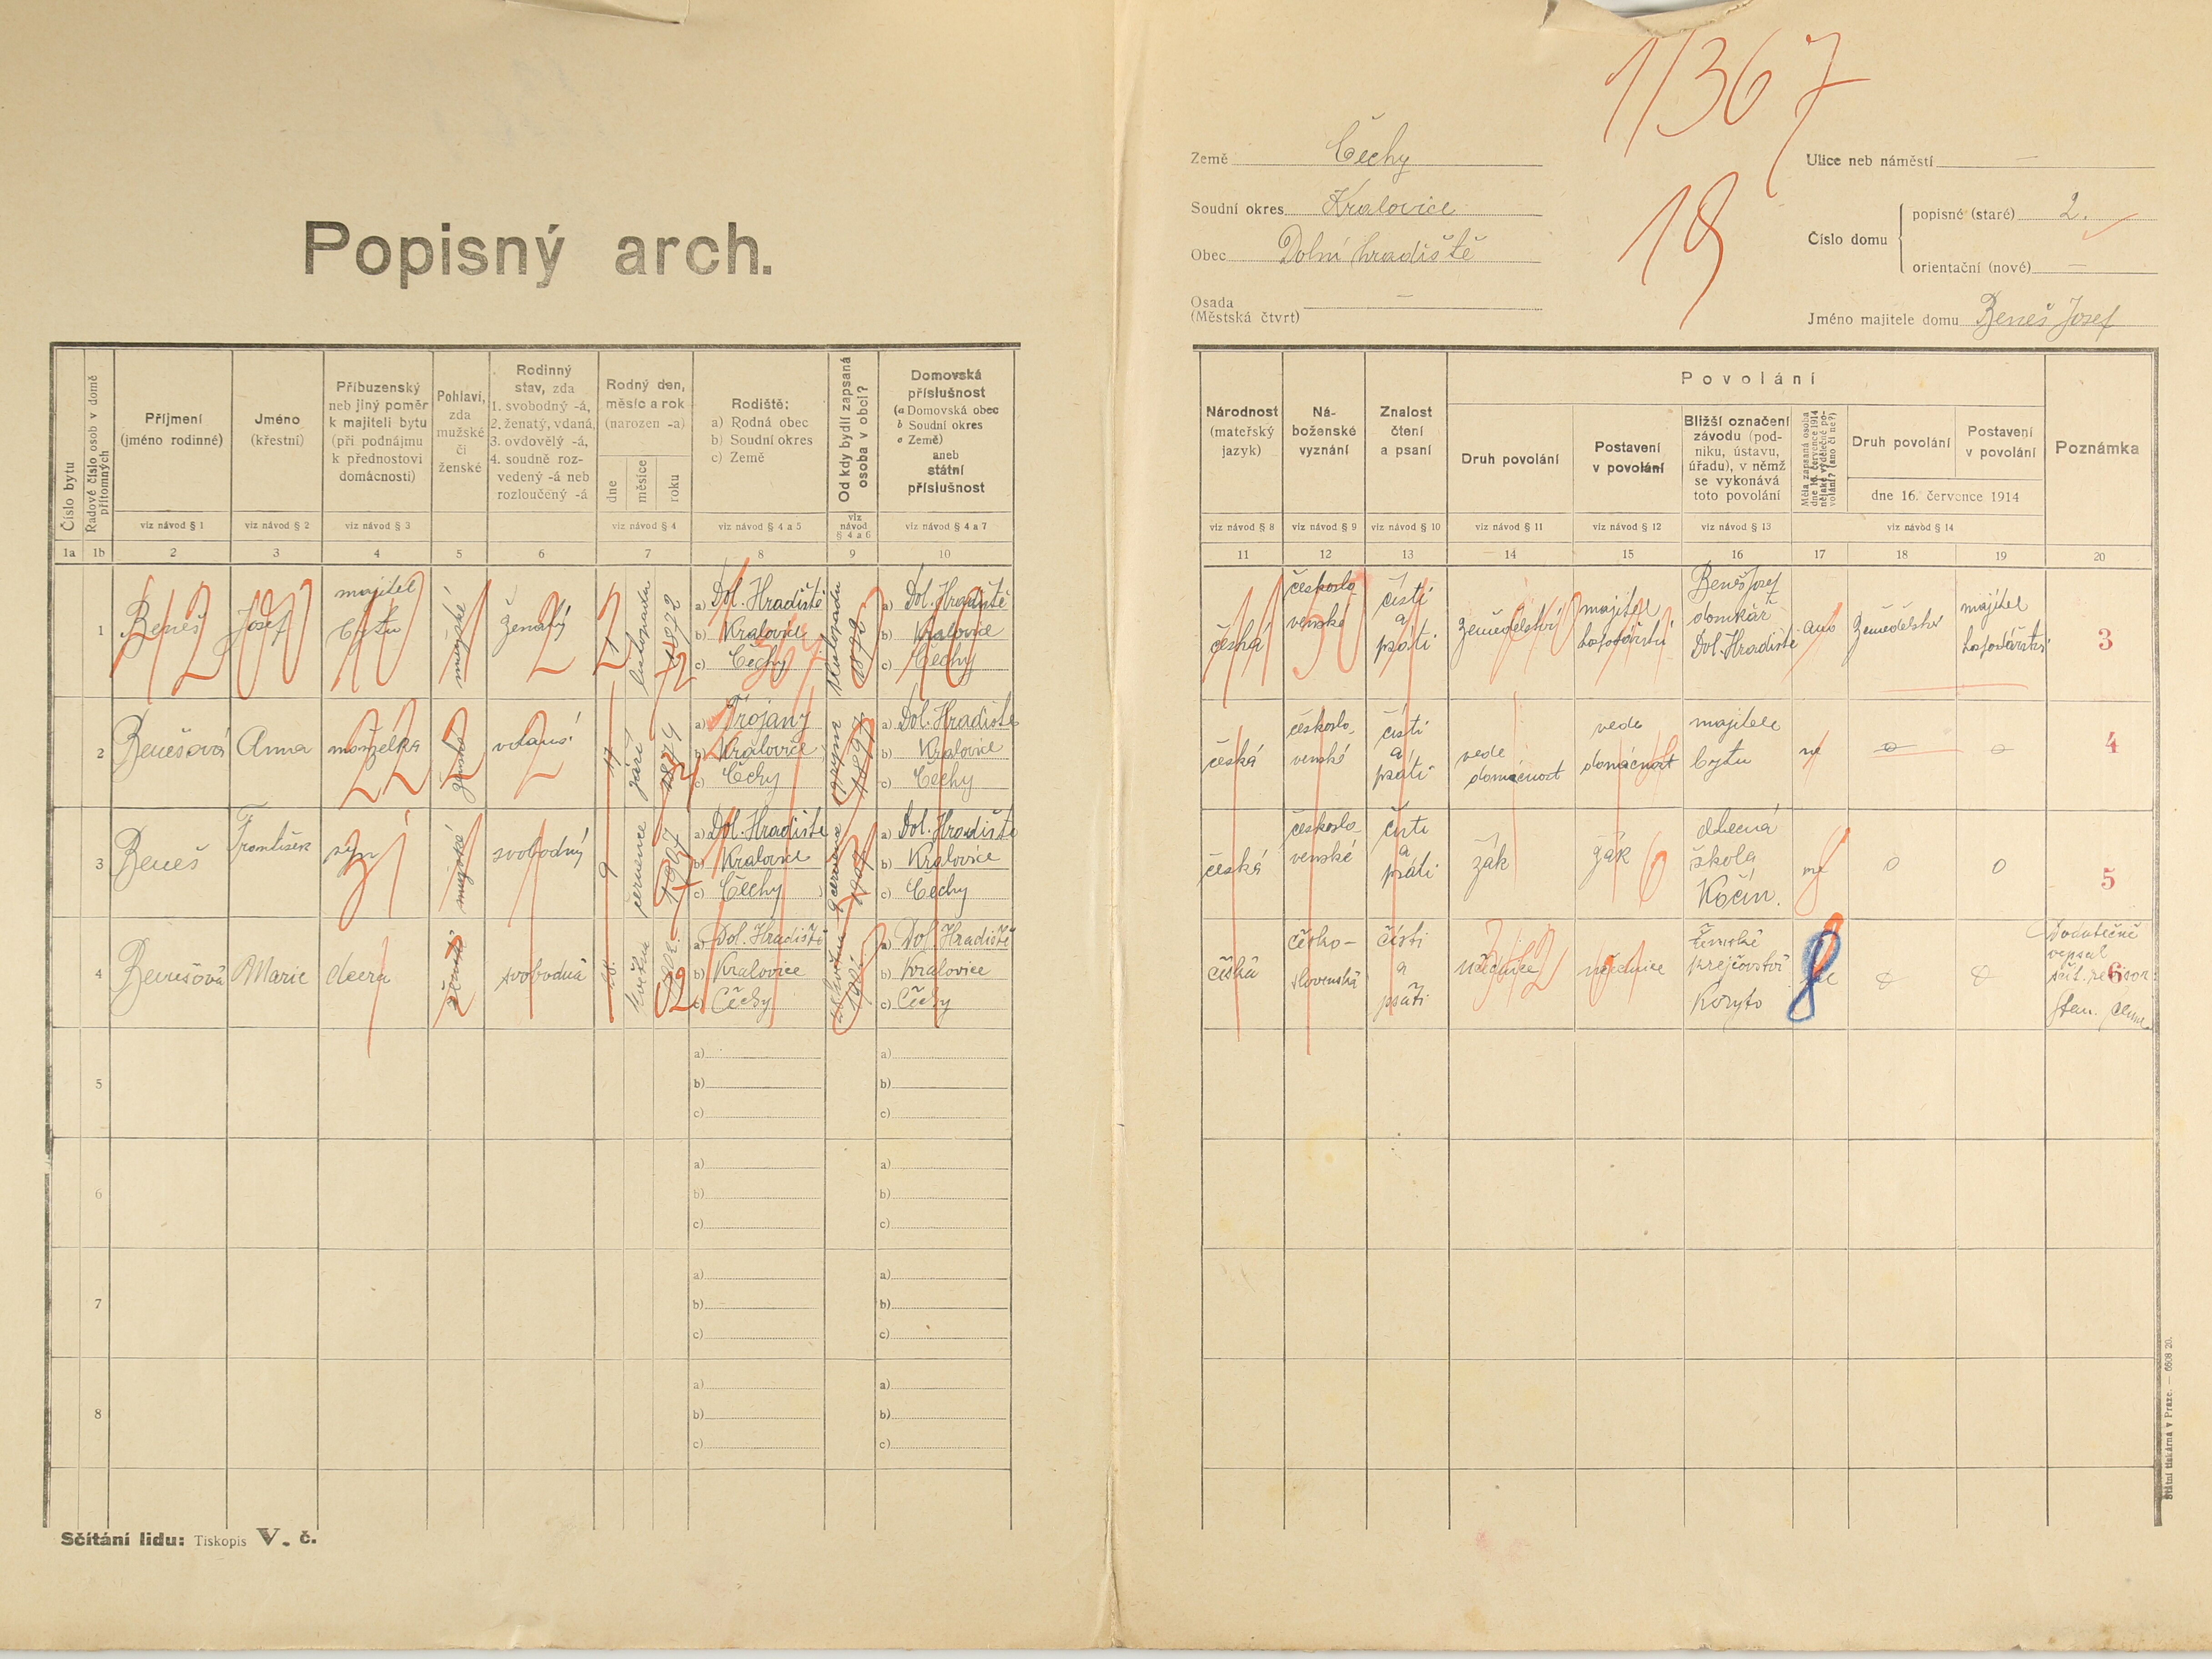 Popisný arch.
1/367
19
Země Čechy
Soudní okres Kralovice
Obec Dolní hradiště
Osada (Městská čtvrt) —
Ulice neb náměstí —
Číslo domu
popisné (staré) 2.
orientační (nové) —
Jméno majitele domu Beneš Josef
Číslo bytu
Řadové číslo osob v domě přítomných
Příjmení
(jméno rodinné)
Jméno
(křestní)
Příbuzenský
neb jiný poměr
k majiteli bytu
(při podnájmu
k přednostovi
domácnosti)
Pohlaví,
zda
mužské
či
ženské
Rodinný
stav, zda
1. svobodný -á,
2. ženatý, vdaná,
3. ovdovělý -á,
4. soudně roz-
vedený -á neb
rozloučený -á
Rodný den,
měsíc a rok
(narozen -a)
dne
měsíce
roku
Rodiště:
a) Rodná obec
b) Soudní okres
c) Země
Od kdy bydlí zapsaná
osoba v obci?
Domovská
příslušnost
(a Domovská obec
b Soudní okres
c Země)
aneb
státní
příslušnost
viz návod § 1
viz návod § 2
viz návod § 3
viz návod § 4
viz návod § 4 a 5
viz
návod
§ 4 a 6
viz návod § 4 a 7
1a 1b 2 3 4 5 6 7 8 9 10
Národnost
(mateřský
jazyk)
Ná-
boženské
vyznání
Znalost
čtení
a psaní
Povolání
Druh povolání
Postavení
v povolání
Bližší označení
závodu (pod-
niku, ústavu,
úřadu), v němž
se vykonává
toto povolání
Měla zapsaná osoba
dne 16. července 1914
nějaké výdělečné po-
volání? (ano či ne?)
Druh povolání
Postavení
v povolání
dne 16. července 1914
Poznámka
viz návod § 8
viz návod § 9
viz návod § 10
viz návod § 11
viz návod § 12
viz návod § 13
viz návod § 14
11 12 13 14 15 16 17 18 19 20
1
Beneš
Josef
majitel
bytu
mužské
ženatý
21
listopadu
1872
a) Dol. Hradiště
b) Kralovice
c) Čechy
listopadu
1872
a) Dol. Hradiště
b) Kralovice
c) Čechy
česká
českoslo
venské
čísti
a
psáti
zemědělství
majitel
hospodářství
Beneš Josef
domkář
Dol. Hradiště
ano
Zemědělství
majitel
hospodářství
3
2
Benešová
Anna
manželka
ženské
vdaná
17
září
1874
a) Trojany
b) Kralovice
c) Čechy
1897
a) Dol. Hradiště
b) Kralovice
c) Čechy
česká
českoslo
venské
čísti
a
psáti
vede
domácnost
vede
domácnost
majitele
bytu
ne
0
0
4
3
Beneš
František
syn
mužské
svobodný
9
července
1907
a) Dol. Hradiště
b) Kralovice
c) Čechy
9 července
1907
a) Dol. Hradiště
b) Kralovice
c) Čechy
česká
českoslo
venské
čísti
a
psáti
žák
žák
obecná
škola
Kočín.
ne
0
0
5
4
Benešová
Marie
dcera
ženské
svobodná
května
a) Dol. Hradiště
b) Kralovice
c) Čechy
a) Dol. Hradiště
b) Kralovice
c) Čechy
česká
česko-
slovenská
čísti
a
psáti
učednice
učednice
ženské
krejčovství
Koryto
8
0
0
6
Dodatečně
vepsal
sčít. revisor
a)
b)
c)
a)
b)
c)
5
a)
b)
c)
a)
b)
c)
6
a)
b)
c)
a)
b)
c)
7
a)
b)
c)
a)
b)
c)
8
Sčítání lidu: Tiskopis V. č.
Státní tiskárna v Praze. — 6608 20.